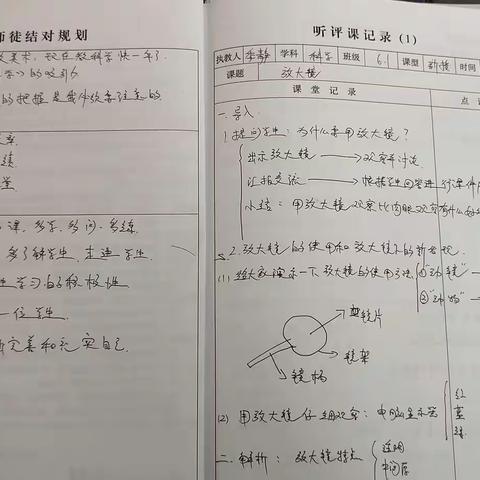 师徒结对规划
美术，现在教科学快一年了
的吸引力
的把握是我必须要注意的
练
课，多学，多问，多练
多了解学生，走进学生
学习的积极性
一位学生
完善和充实自己
听评课记录（1）
执教人 季静 学科 科学 班级 6.1 课型 新授 时间
课题 放大镜
课堂记录 点
一、导入
1.提问学生：为什么要用放大镜？
出示放大镜 → 观察并讨论
汇报交流 → 根据学生回答进行课件
小结：用放大镜观察比肉眼观察有什么好
2.放大镜的使用和放大镜下的新发现
(1) 给大家演示一下放大镜的使用方法 ①"动镜"
②"动物"
镜片
镜架
镜柄
(2) 用放大镜仔细观察：电脑显示器 红
蓝
绿
二、解析：放大镜特点 透明
中间厚